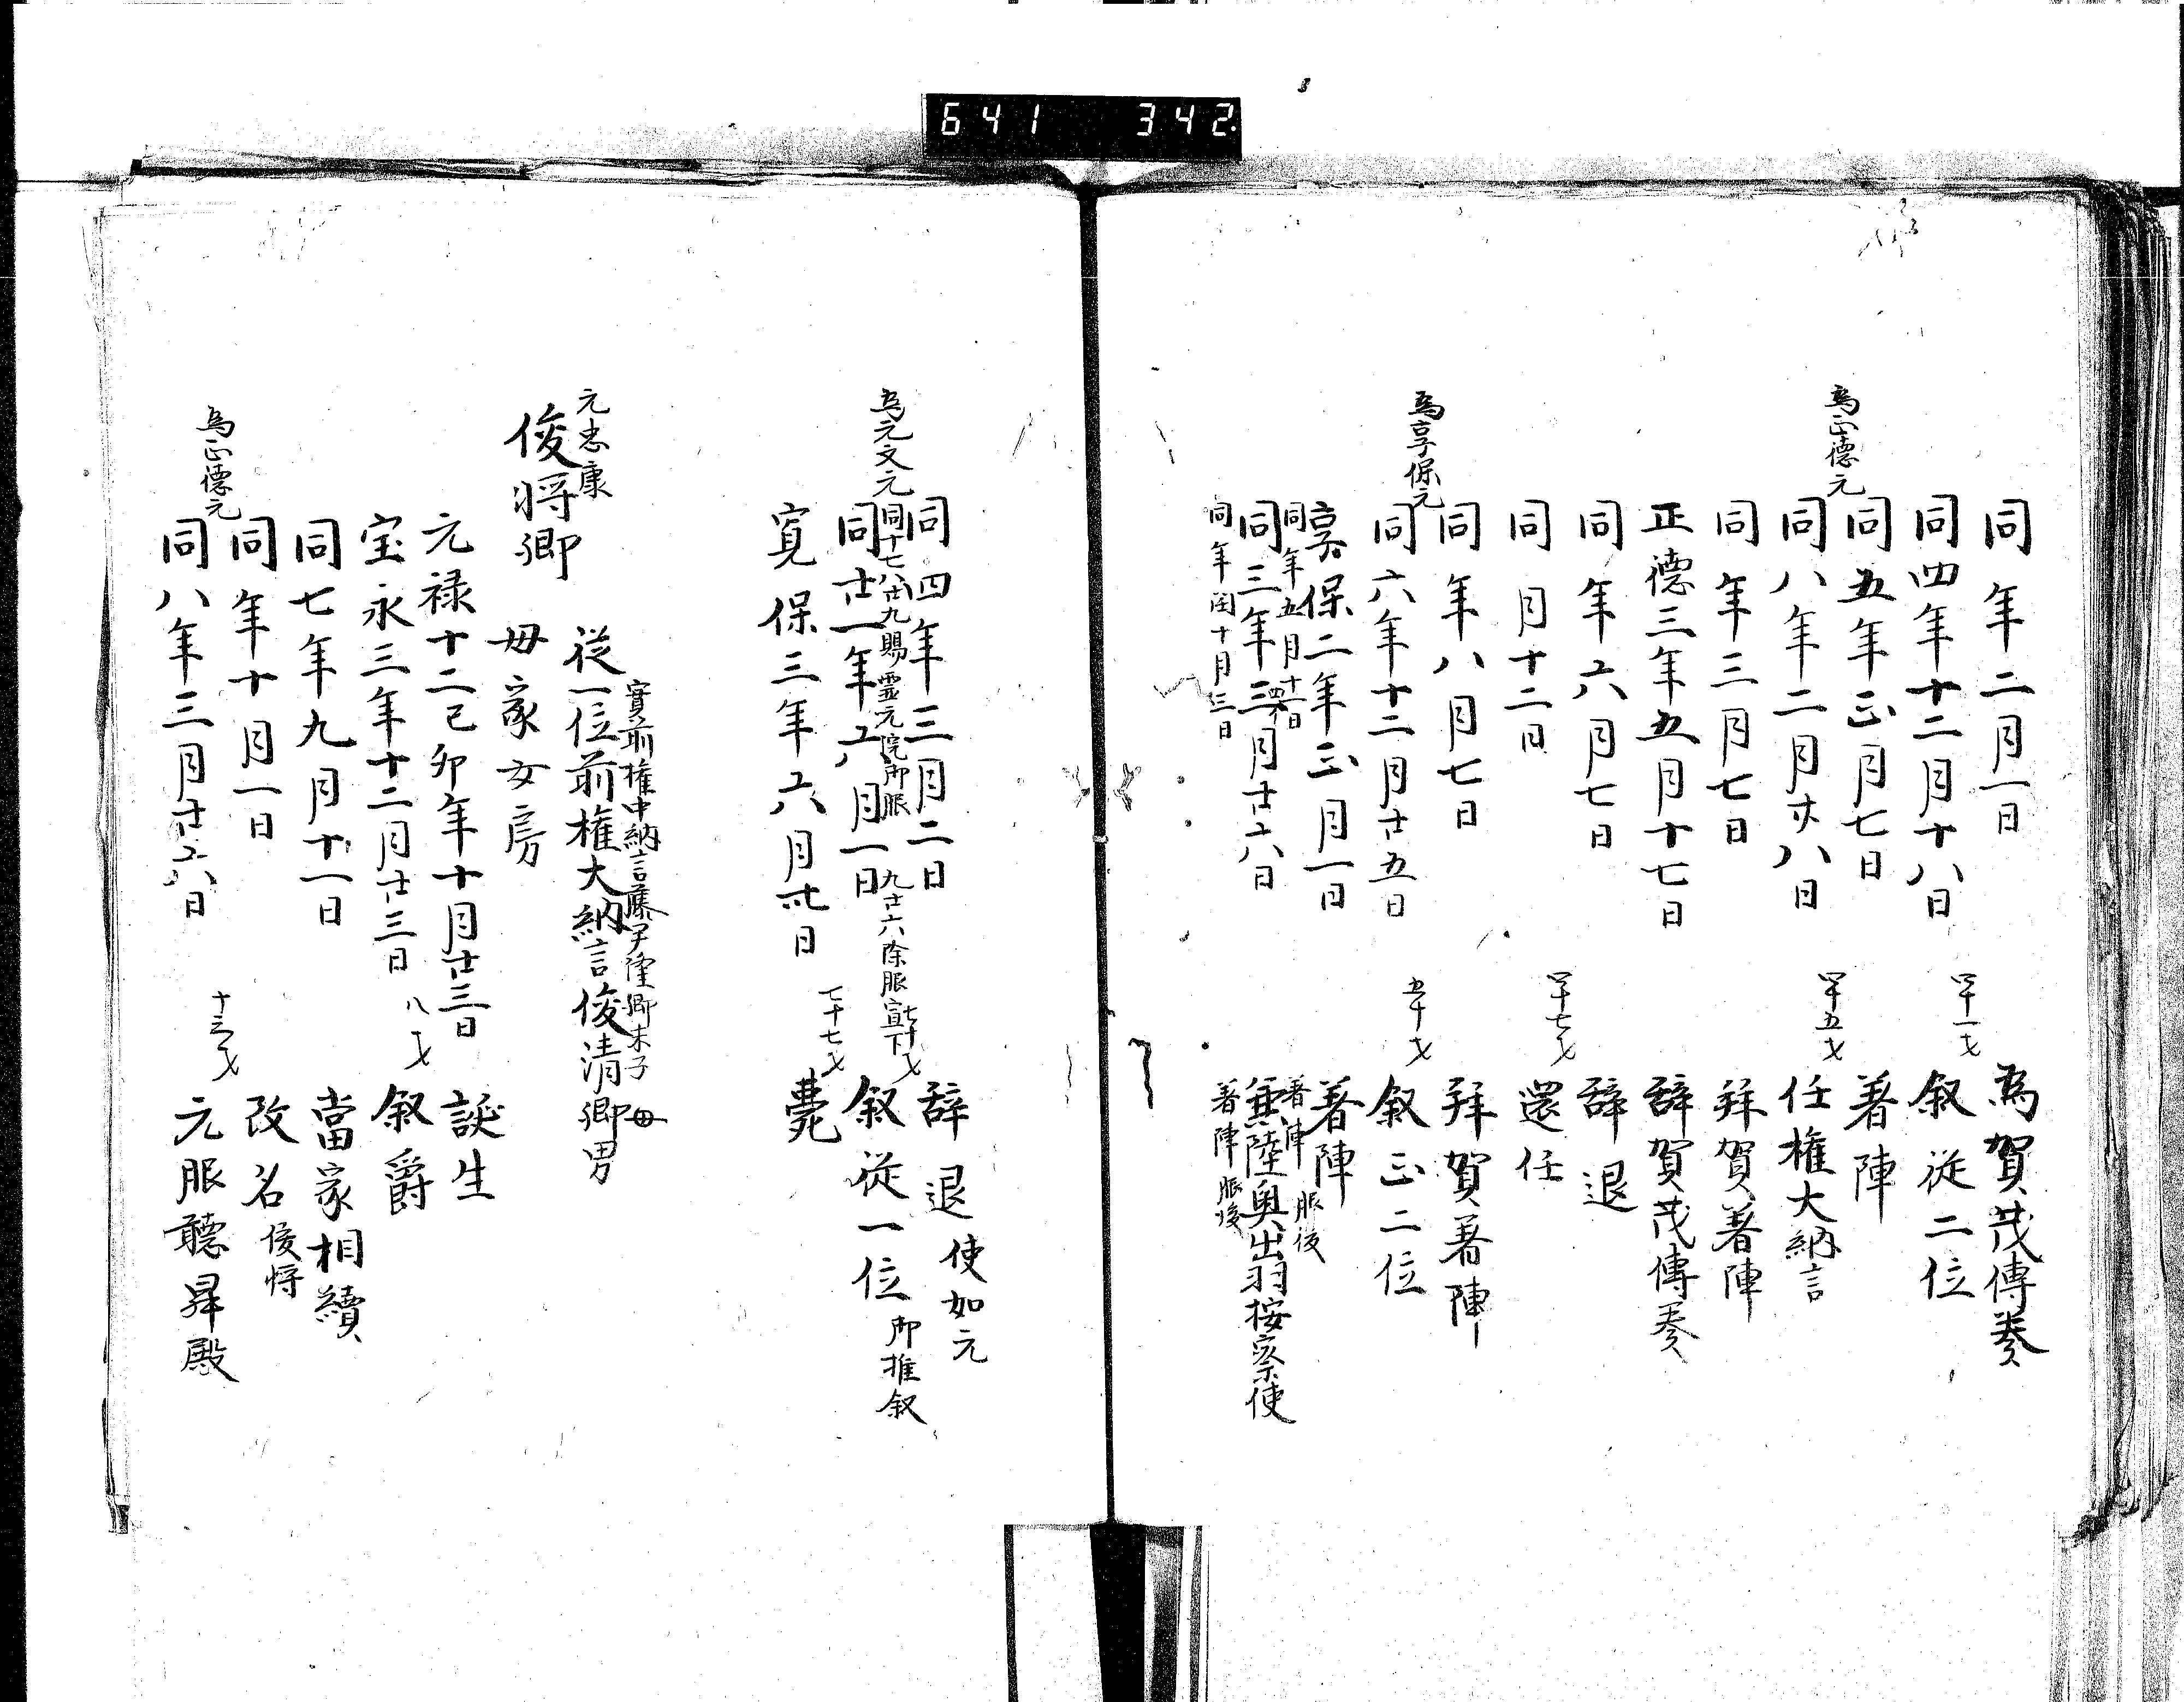 641 342.
同年二月一日 為賀茂傳奏
同四年十二月十八日 四十一才 叙従二位
同五年正月七日 著陣
為正德元
同八年二月廿八日 四十五才 任権大納言
同年三月七日 拜賀著陣
正德三年五月十七日 辞賀茂傳奏
同年六月七日 辞退
同月十二日 四十七才 還任
同年八月七日 拜賀著陣
為享保元
同六年十二月廿五日 五十才 叙正二位
享保二年正月一日 著陣
同年五月十 日 著陣 服後
同三年三月廿六日 兼陸奥出羽按察使
同年閏十月三日 著陣 服後
同四年三月二日 辞退 使如元
同十七八廿九賜霊元院御服 九廿六除服宣下
為元文元
同廿一年六月一日 七十才 叙従一位 御推叙
寛保三年六月 日 七十七才 薨
元忠康
俊将卿 従一位前権大納言俊清卿男
實前権中納言藤 隆卿末子 母
母家女房
元禄十二己卯年十月廿三日 誕生
宝永三年十二月廿三日 八才 叙爵
同七年九月十一日 當家相續
同年十月一日 改名 俊将
為正德元
同八年三月廿六日 十三才 元服聴昇殿